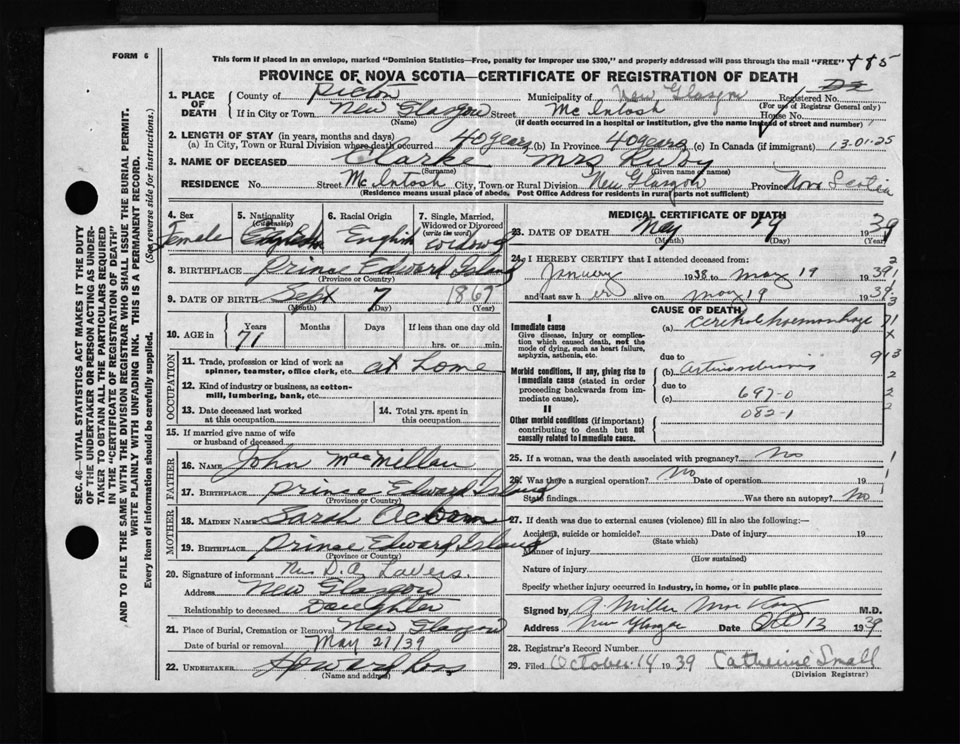 FORM 6
This form if placed in an envelope, marked "Dominion Statistics—Free, penalty for improper use $300," and properly addressed will pass through the mail "FREE"
PROVINCE OF NOVA SCOTIA—CERTIFICATE OF REGISTRATION OF DEATH
1. PLACE OF DEATH
County of Pictou Municipality of New Glasgow Registered No.
(For use of Registrar General only)
If in City or Town New Glasgow Street McIntosh House No.
(Name) (If death occurred in a hospital or institution, give the name instead of street and number)
2. LENGTH OF STAY (in years, months and days)
(a) In City, Town or Rural Division where death occurred 40 years (b) In Province 40 years (c) In Canada (if immigrant) 13-01-25
3. NAME OF DECEASED Clarke Mrs Ruby
(Surname) (Given name or names)
RESIDENCE No. Street McIntosh City, Town or Rural Division New Glasgow Province Nova Scotia
(Residence means usual place of abode. Post Office Address for residents in rural parts not sufficient)
4. Sex Female
5. Nationality (Citizenship) English
6. Racial Origin English
7. Single, Married, Widowed or Divorced (write the word) Widowed
8. BIRTHPLACE Prince Edward Island
(Province or Country)
9. DATE OF BIRTH Sept 7 1867
(Month) (Day) (Year)
10. AGE in Years Months Days If less than one day old
71 hrs. or min.
OCCUPATION
11. Trade, profession or kind of work as spinner, teamster, office clerk, etc. at home
12. Kind of industry or business, as cotton-mill, lumbering, bank, etc.
13. Date deceased last worked at this occupation
14. Total yrs. spent in this occupation
15. If married give name of wife or husband of deceased
FATHER
16. NAME John MacMillan
17. BIRTHPLACE Prince Edward Island
(Province or Country)
MOTHER
18. MAIDEN NAME Sarah
19. BIRTHPLACE Prince Edward Island
(Province or Country)
20. Signature of informant Mrs D. A. Lavers
Address New Glasgow
Relationship to deceased Daughter
21. Place of Burial, Cremation or Removal New Glasgow
Date of burial or removal May 21/39
22. UNDERTAKER Howard Ross
(Name and address)
MEDICAL CERTIFICATE OF DEATH
23. DATE OF DEATH May 19 1939
(Month) (Day) (Year)
24. I HEREBY CERTIFY that I attended deceased from:
January 1938 to May 19 1939
and last saw her alive on May 19 1939
CAUSE OF DEATH
I
Immediate cause
Give disease, injury or complication which caused death, not the mode of dying, such as heart failure, asphyxia, asthenia, etc.
(a) cerebral haemorrhage
due to
Morbid conditions, if any, giving rise to immediate cause (stated in order proceeding backwards from immediate cause)
(b)
due to
(c) 697-0
082-1
II
Other morbid conditions (if important) contributing to death but not causally related to immediate cause.
25. If a woman, was the death associated with pregnancy? No
26. Was there a surgical operation? No Date of operation 19
State findings Was there an autopsy? No
27. If death was due to external causes (violence) fill in also the following:—
Accident, suicide or homicide? Date of injury 19
(State which)
Manner of injury
(How sustained)
Nature of injury
Specify whether injury occurred in industry, in home, or in public place
Signed by A. Miller M.D.
Address New Glasgow Date Oct 13 1939
28. Registrar's Record Number
29. Filed October 14 1939 Catherine Small
(Division Registrar)
SEC. 46—VITAL STATISTICS ACT MAKES IT THE DUTY
OF THE UNDERTAKER OR PERSON ACTING AS UNDER-
TAKER TO OBTAIN ALL THE PARTICULARS REQUIRED
IN THE "CERTIFICATE OF REGISTRATION OF DEATH"
AND TO FILE THE SAME WITH THE DIVISION REGISTRAR WHO SHALL ISSUE THE BURIAL PERMIT.
WRITE PLAINLY WITH UNFADING INK. THIS IS A PERMANENT RECORD.
Every item of information should be carefully supplied. (See reverse side for instructions.)